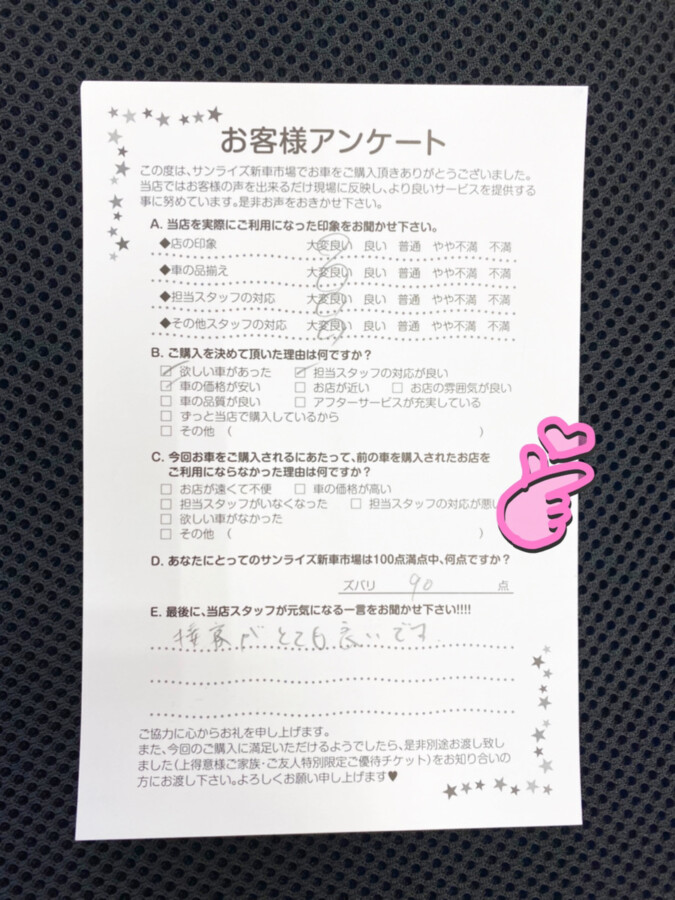 お客様アンケート
この度は、サンライズ新車市場でお車をご購入頂きありがとうございました。
当店ではお客様の声を出来るだけ現場に反映し、より良いサービスを提供する
事に努めています。是非お声をおきかせ下さい。
A. 当店を実際にご利用になった印象をお聞かせ下さい。
◆店の印象 大変良い 良い 普通 やや不満 不満
◆車の品揃え 大変良い 良い 普通 やや不満 不満
◆担当スタッフの対応 大変良い 良い 普通 やや不満 不満
◆その他スタッフの対応 大変良い 良い 普通 やや不満 不満
B. ご購入を決めて頂いた理由は何ですか？
☑ 欲しい車があった ☑ 担当スタッフの対応が良い
☑ 車の価格が安い □ お店が近い □ お店の雰囲気が良い
□ 車の品質が良い □ アフターサービスが充実している
□ ずっと当店で購入しているから
□ その他 ( )
C. 今回お車をご購入されるにあたって、前の車を購入されたお店を
ご利用にならなかった理由は何ですか？
□ お店が遠くて不便 □ 車の価格が高い
□ 担当スタッフがいなくなった □ 担当スタッフの対応が悪い
□ 欲しい車がなかった
□ その他 ( )
D. あなたにとってのサンライズ新車市場は100点満点中、何点ですか？
ズバリ 90 点
E. 最後に、当店スタッフが元気になる一言をお聞かせ下さい!!!!
接客がとても良いです
ご協力に心からお礼を申し上げます。
また、今回のご購入に満足いただけるようでしたら、是非別途お渡し致し
ました（上得意様ご家族・ご友人特別限定ご優待チケット）をお知り合いの
方にお渡し下さい。よろしくお願い申し上げます♥